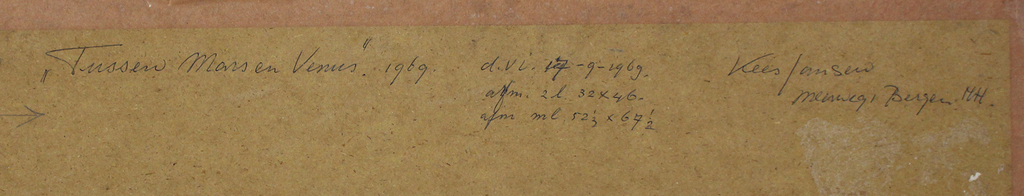 „Tussen Mars en Venus". 1969.
d.vi. 17-9-1969.
afm. zl. 32x46.
afm ml 52½ x 67½
Kees Jansen
Bergen. NH.